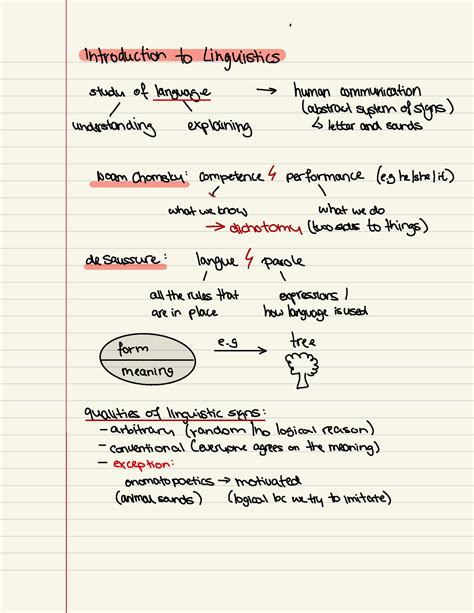 Introduction to Linguistics
study of language → human communication
(abstract system of signs)
understanding explaining ↳ letter and sounds
Noam Chomsky: competence ↯ performance (e.g he/she/it)
what we know what we do
→ dichotomy (two sides to things)
de Saussure: langue ↯ parole
all the rules that expressions /
are in place how language is used
form e.g → tree
meaning
qualities of linguistic signs:
- arbitrary (random / no logical reason)
- conventional (everyone agrees on the meaning)
- exception:
onomatopoetics → motivated
(animal sounds) (logical bc we try to imitate)